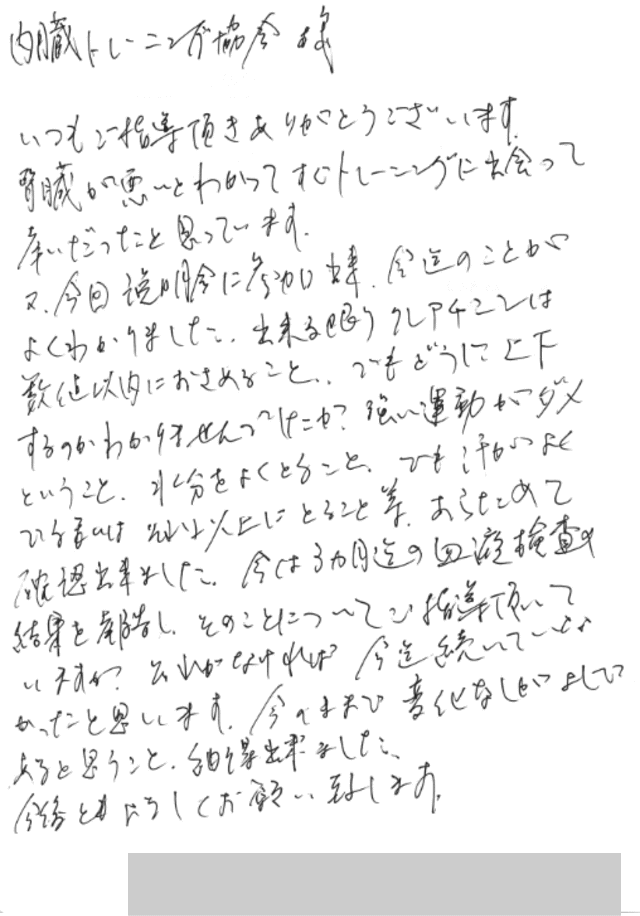 内臓トレーニング協会 様
いつもご指導頂きありがとうございます。
腎臓が悪いとわかってすぐトレーニングに出会って
幸いだったと思っています。
又、今回説明会に参加出来、今迄のことが
よくわかりました。出来る限りクレアチニンは
数値以内におさめること、でもどうにも上下
するのかわかりませんでしたが？強い運動がダメ
ということ。水分をよくとること、でも汗がよく
でる私は それ以上にとること等、あらためて
確認出来ました。今は3ヵ月迄の血液検査の
結果を報告し、そのことについてご指導頂いて
いますが？それがなければ 今迄続いていな
かったと思います。今のままで 変化なしがよしで
あると思うこと、納得出来ました。
今後ともよろしくお願い致します。